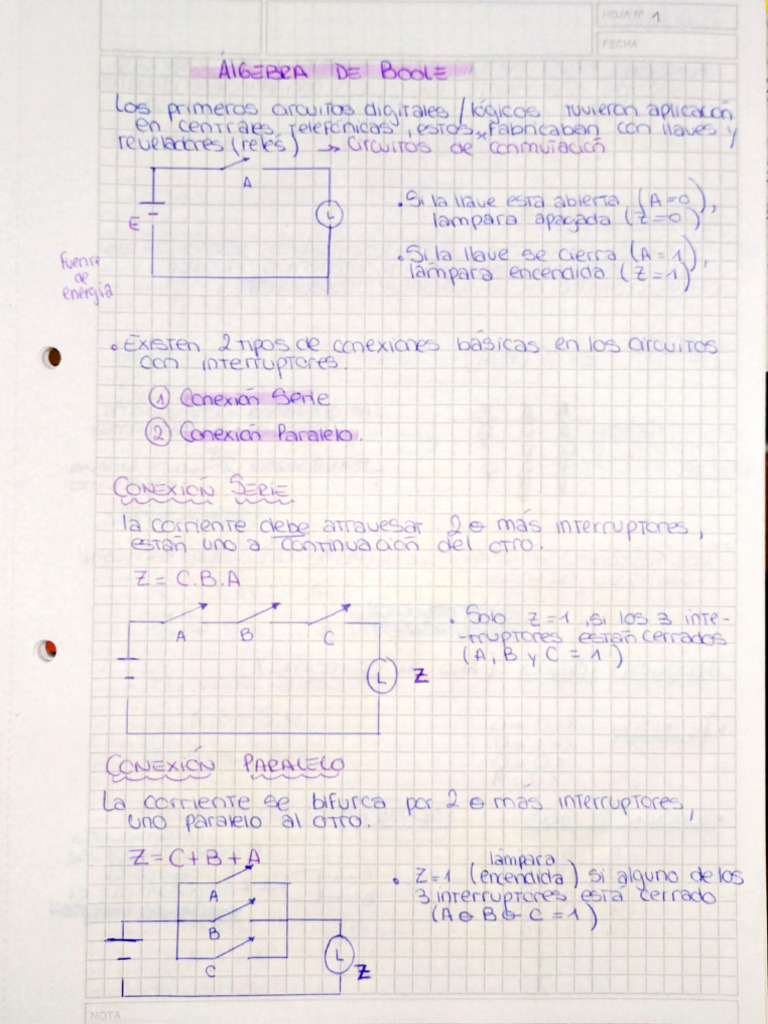 HOJA Nº 1
FECHA
ÁLGEBRA DE BOOLE
Los primeros circuitos digitales/lógicos tuvieron aplicación
en centrales telefónicas, estos se fabricaban con llaves y
reveladores (relés) → circuitos de conmutación
A
E
L
Fuente
de
energía
• Si la llave esta abierta (A=0),
lampara apagada (Z=0)
• Si la llave se cierra (A=1),
lámpara encendida (Z=1)
• Existen 2 tipos de conexiones básicas en los circuitos
con interruptores.
① Conexión Serie
② Conexión Paralelo.
CONEXIÓN SERIE
la corriente debe atravesar 2 o más interruptores,
están uno a continuación del otro.
Z = C.B.A
A B C
L Z
• Solo Z=1, si los 3 inte-
-rruptores están cerrados
(A, B y C = 1)
CONEXIÓN PARALELO
La corriente se bifurca por 2 o más interruptores,
uno paralelo al otro.
Z = C+B+A
A
B
C
L Z
lámpara
• Z=1 (encendida) si alguno de los
3 interruptores está cerrado
(A o B o C = 1)
NOTA